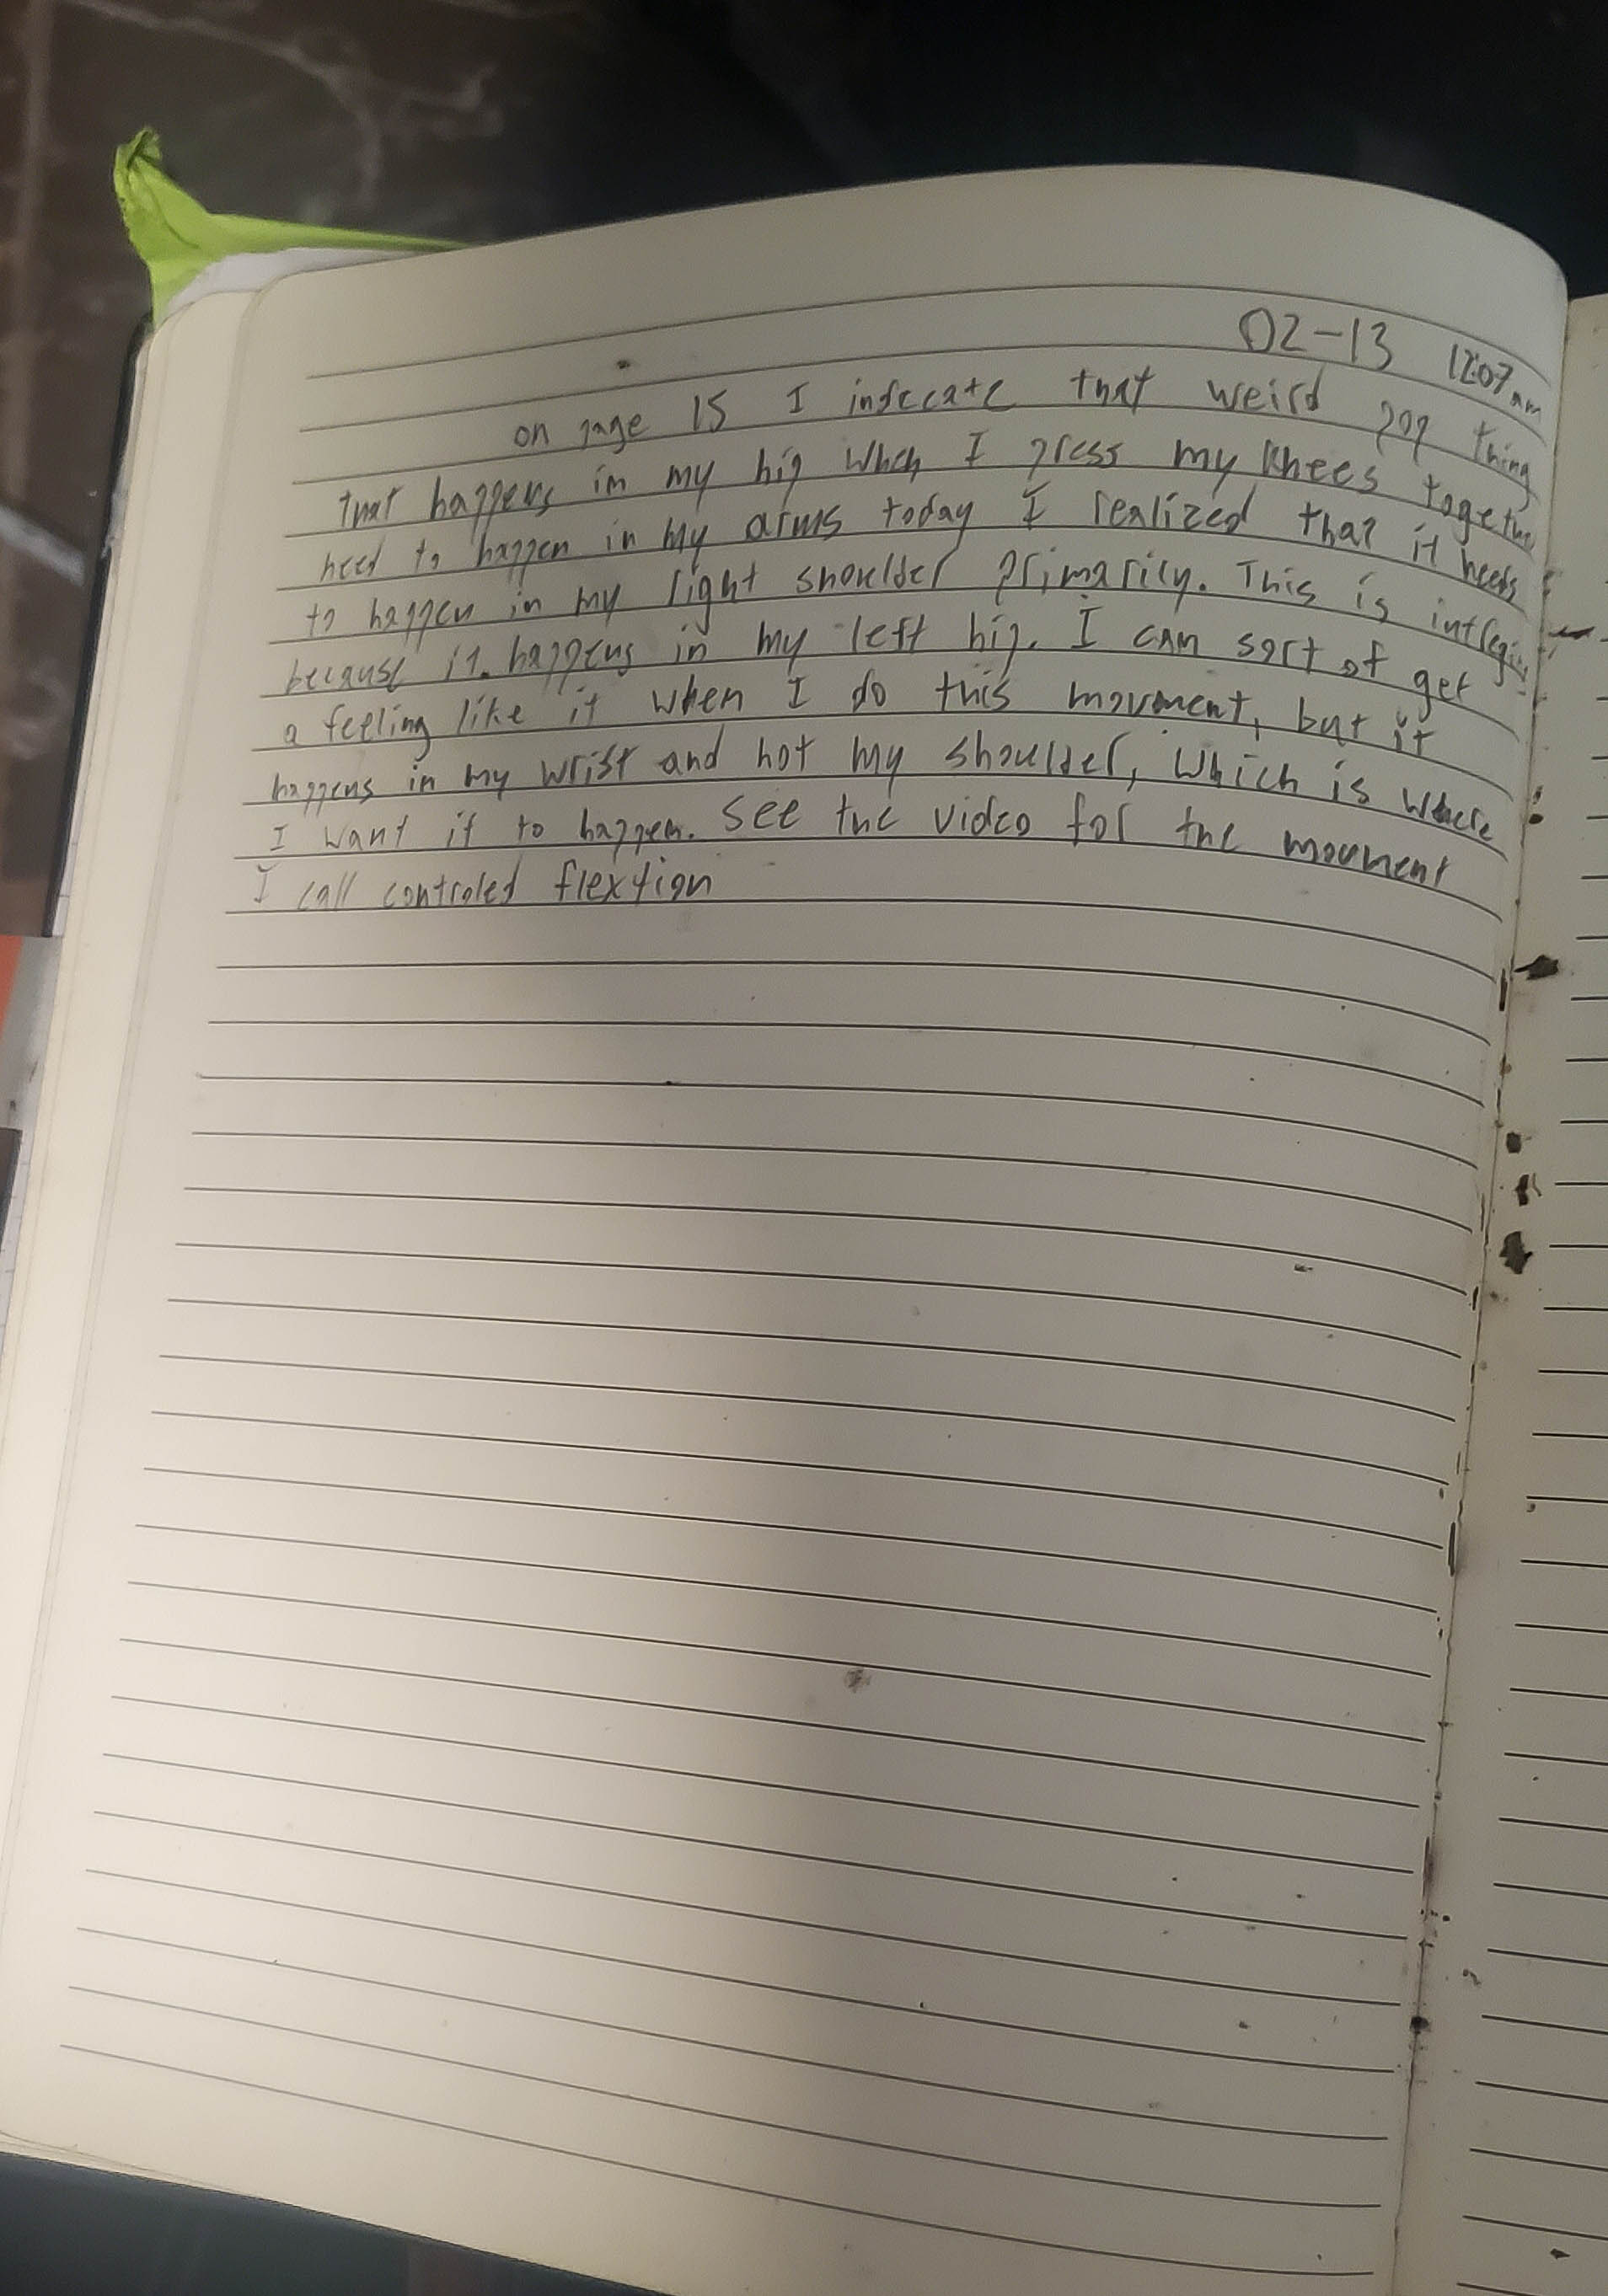 02-13 12:07 am
on page 15 I indecate that weird pop thing
that happens in my hip when I press my knees together
need to happen in my arms today I realized that it needs
to happen in my right shoulder primarily. This is
because it happens in my left hip. I can sort of get
a feeling like it when I do this movment, but it
happens in my wrist and not my shoulder, which is where
I want it to happen. see the video for the movment
I call controled flextion